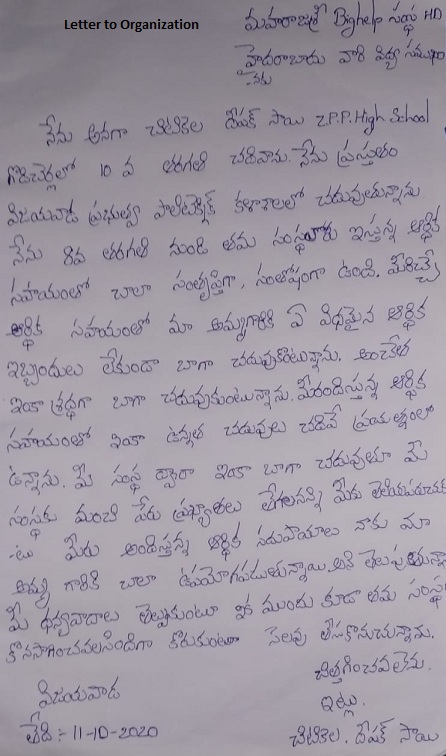 Letter to Organization
మహారాజశ్రీ Bighelp సంస్థ HD
హైదరాబాదు వారి దివ్య సముఖం
నకు
నేను అనగా చిటికెల దీపక్ సాయి Z.P.P. High School
గొరిచెర్లలో 10 వ తరగతి చదివాను. నేను ప్రస్తుతం
విజయవాడ ప్రభుత్వ పాలిటెక్నిక్ కళాశాలలో చదువుతున్నాను
నేను 8వ తరగతి నుండి తమ సంస్థవారు ఇస్తున్న ఆర్థిక
సహాయంతో చాలా సంతృప్తిగా, సంతోషంగా ఉంది. మీరిచ్చే
ఆర్థిక సహాయంతో మా అమ్మగారికి ఏ విధమైన ఆర్థిక
ఇబ్బందులు లేకుండా బాగా చదువుకొంటున్నాను. అంచేత
ఇంకా శ్రద్ధగా బాగా చదువుకుంటున్నాను. మీరందిస్తున్న ఆర్థిక
సహాయంతో ఇంకా ఉన్నత చదువులు చదివే ప్రయత్నంలో
ఉన్నాను. మీ సంస్థ ద్వారా ఇంకా బాగా చదువుతూ మీ
సంస్థకు మంచి పేరు ప్రఖ్యాతులు మీకు
మీరు అందిస్తున్న ఆర్థిక సదుపాయాలు నాకు మా
అమ్మ గారికి చాలా ఉపయోగపడుతున్నాయి. అని తెలుపుతున్నా
మీ ధన్యవాదాలు తెల్పుకుంటూ ఇక ముందు కూడా తమ సంస్థ
కొనసాగించవలసిందిగా కోరుకుంటూ సెలవు తీసుకొనుచున్నాను.
చిత్తగించవలెను.
విజయవాడ
ఇట్లు.
తేది :- 11-10-2020
చిటికెల. దీపక్ సాయి